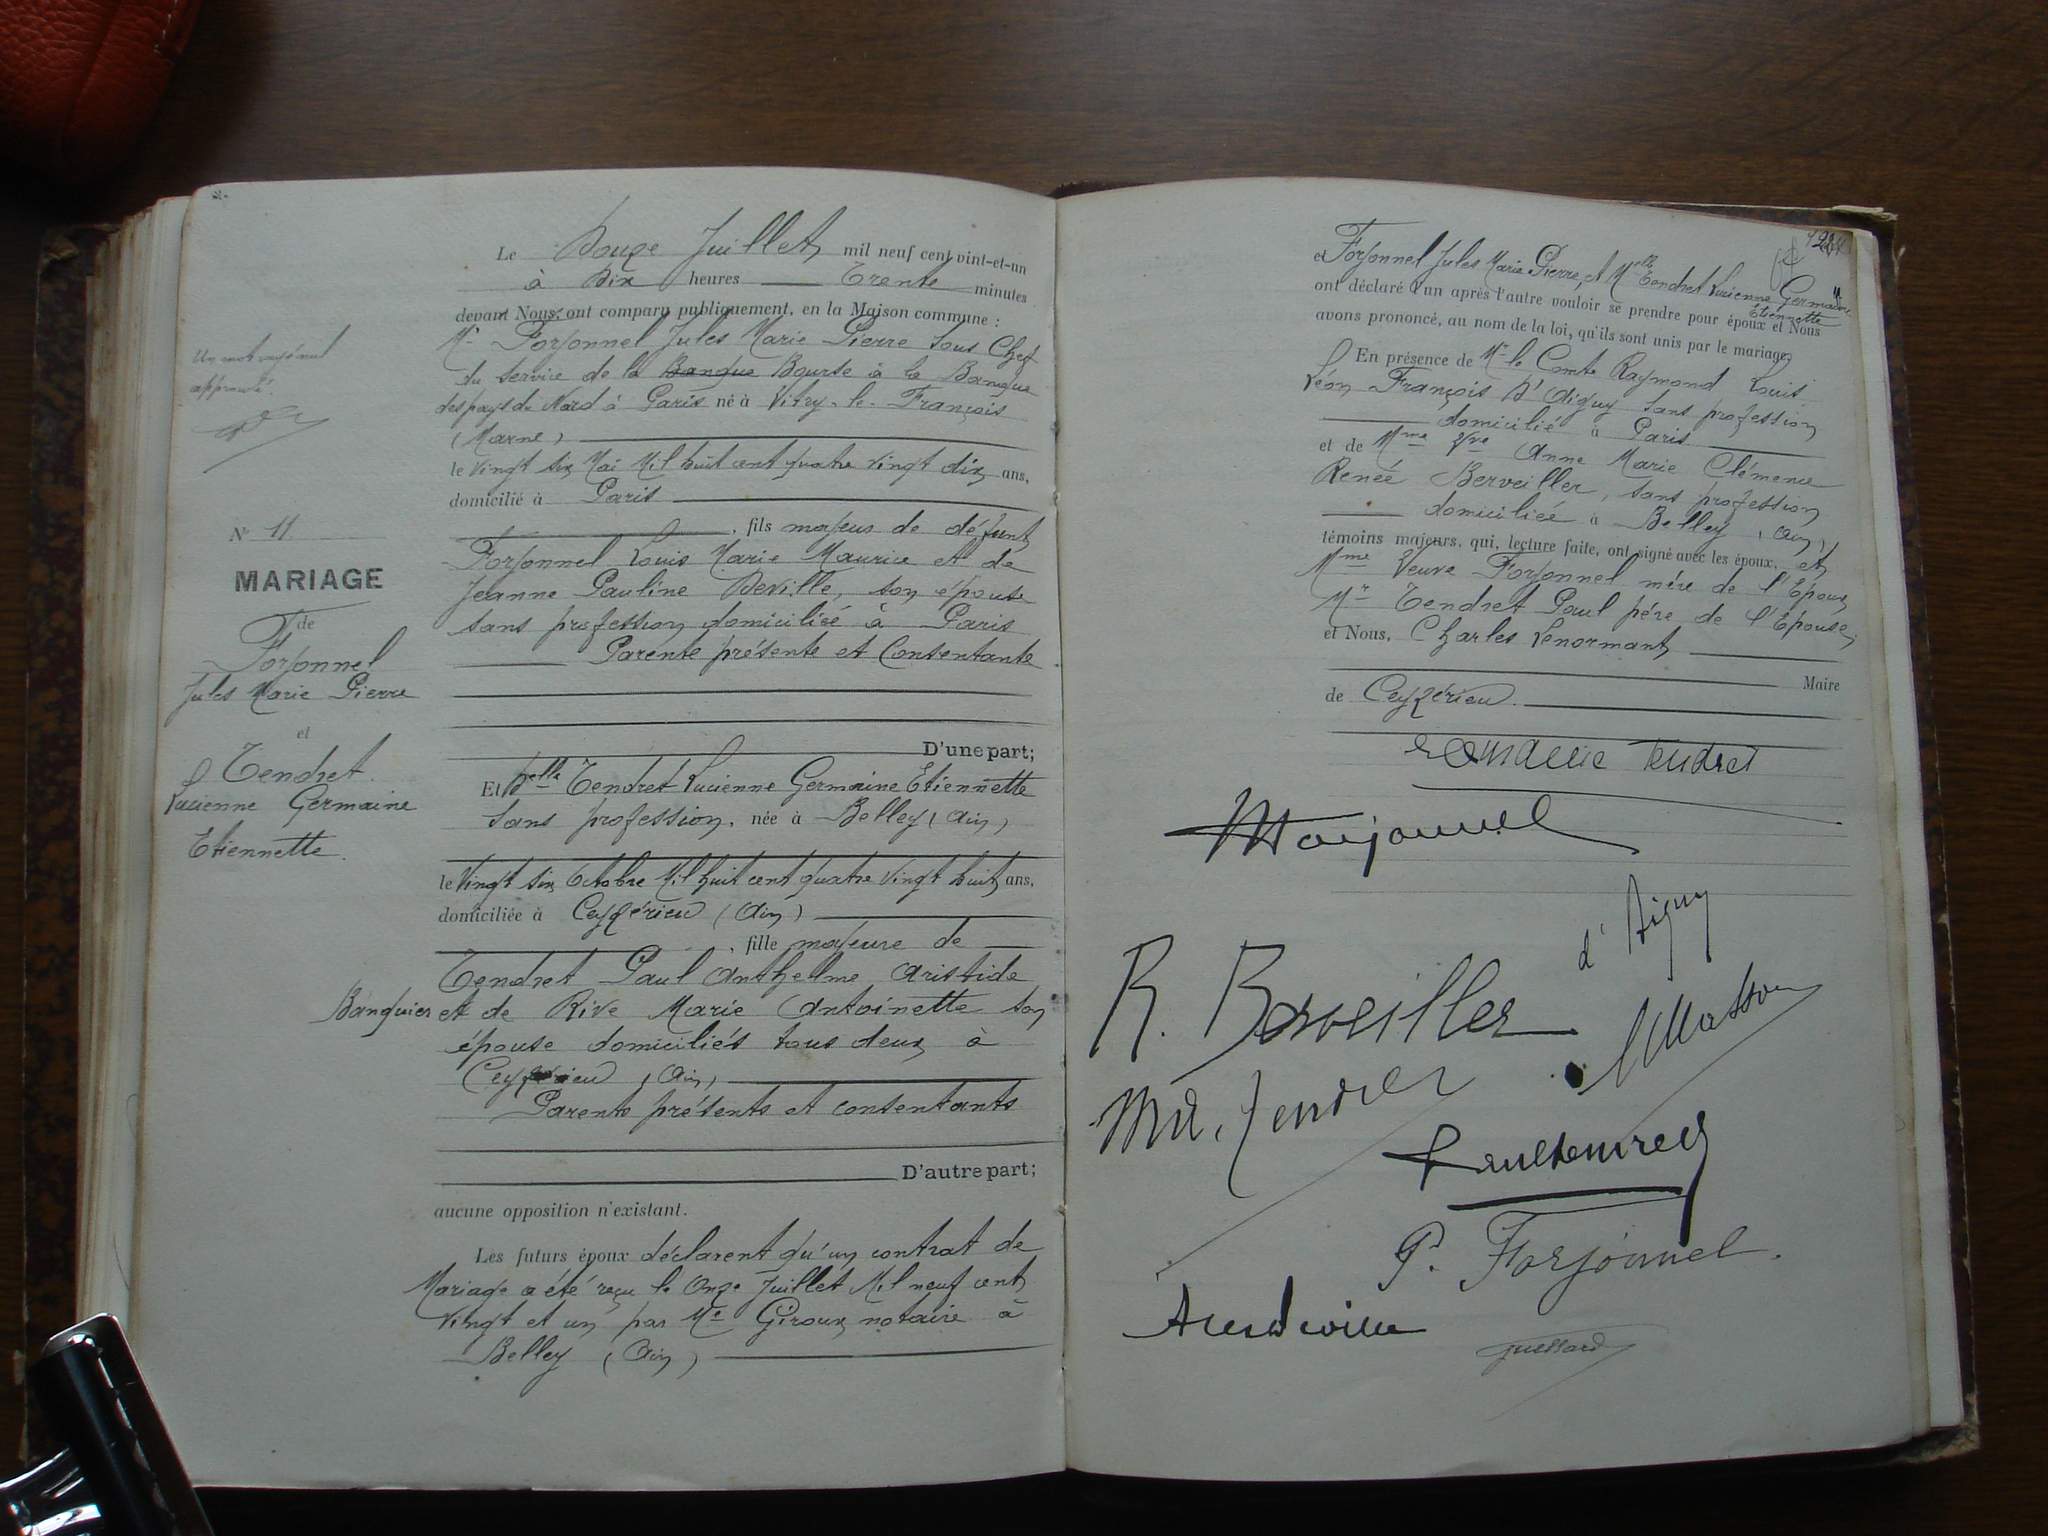 Le Douze Juillet mil neuf cent vint-et-un
à Dix heures Trente minutes
devant Nous, ont comparu publiquement, en la Maison commune :
Mr Forjonnel Jules Marie Pierre Sous Chef
du service de la Banque Bourse à la Banque
des pays du Nord à Paris né à Vitry-le-François
(Marne)
le vingt six Mai Mil huit cent quatre vingt dix ans,
domicilié à Paris
, fils majeur de défunt
Forjonnel Louis Marie Maurice et de
Jeanne Pauline Deville, son épouse
sans profession domiciliée à Paris
Parente présente et Consentante
D'une part;
Et Delle Tendret Lucienne Germaine Etiennette
sans profession, née à Belley (Ain)
le Vingt six Octobre Mil huit cent quatre vingt huit ans,
domiciliée à Ceyzérieu (Ain)
, fille majeure de
Tendret Paul Anthelme Aristide
Banquier et de Rive Marie Antoinette son
épouse domiciliés tous deux à
Ceyzérieu (Ain)
Parents présents et consentants
D'autre part;
aucune opposition n'existant.
Les futurs époux déclarent qu'un contrat de
Mariage a été reçu le Onze Juillet Mil neuf cent
vingt et un par Me Giroux notaire à
Belley (Ain)
Un mot rayé nul
approuvé.
No 11
MARIAGE
de
Forjonnel
Jules Marie Pierre
et
Tendret
Lucienne Germaine
Etiennette.
et Forjonnel Jules Marie Pierre, et Melle Tendret Lucienne Germaine
Etiennette
ont déclaré l'un après l'autre vouloir se prendre pour époux et Nous
avons prononcé, au nom de la loi, qu'ils sont unis par le mariage,
En présence de Mr le Comte Raymond Louis
Léon François d'Aiguy sans profession
domicilié à Paris
et de Mme Vve Anne Marie Clémence
Renée Berveiller, sans profession
domiciliée à Belley (Ain),
témoins majeurs, qui, lecture faite, ont signé avec les époux, et
Mme Veuve Forjonnel mère de l'Epoux
Mr Tendret Paul père de l'Epouse,
et Nous, Charles Lenormant,
Maire
de Ceyzérieu.
Tendret
Forjonnel
d'Aiguy
R. Berveiller
Masson
Tendret
P. Forjonnel.